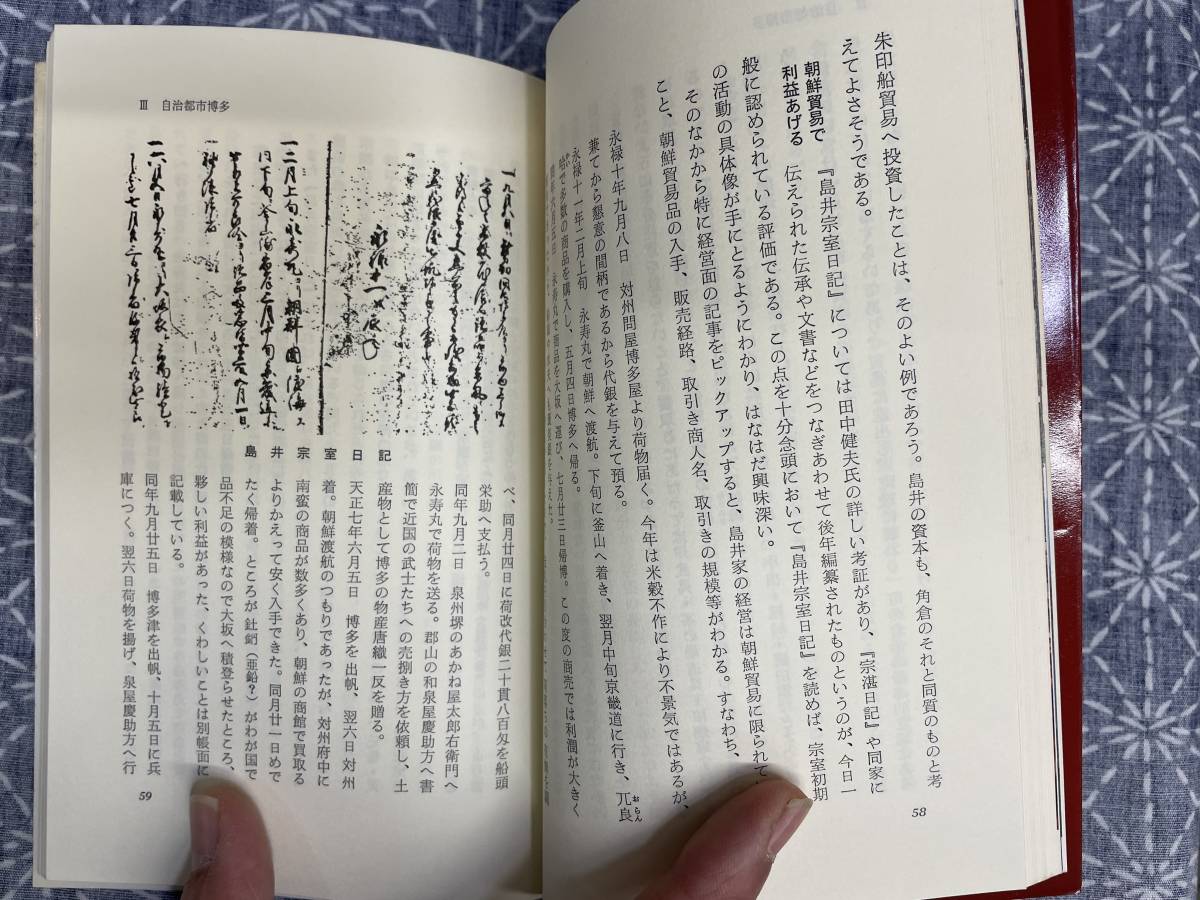 朱印船貿易へ投資したことは、そのよい例であろう。島井の資本も、角倉のそれと同質のものと考
えてよさそうである。
朝鮮貿易で
利益あげる
『島井宗室日記』については田中健夫氏の詳しい考証があり、『宗湛日記』や同家に
伝えられた伝承や文書などをつなぎあわせて後年編纂されたものというのが、今日一
般に認められている評価である。この点を十分念頭において『島井宗室日記』を読めば、宗室初期
の活動の具体像が手にとるようにわかり、はなはだ興味深い。
そのなかから特に経営面の記事をピックアップすると、島井家の経営は朝鮮貿易に限られて
こと、朝鮮貿易品の入手、販売経路、取引き商人名、取引きの規模等がわかる。すなわち、
永禄十年九月八日 対州問屋博多屋より荷物届く。今年は米穀不作により不景気ではあるが、
兼てから懇意の間柄であるから代銀を与えて預る。
永禄十一年二月上旬 永寿丸で朝鮮へ渡航。下旬に釜山へ着き、翌月中旬京畿道に行き、兀良
おらん
哈で多数の商品を購入し、五月四日博多へ帰る。
永寿丸で商品を大坂へ運び、七月廿三日帰博。この度の商売では利潤が大きく
58
Ⅲ 自治都市博多
島井宗室日記
べ、同月廿四日に荷改代銀二十貫八百匁を船頭
栄助へ支払う。
同年九月二日 泉州堺のあかね屋太郎右衛門へ
永寿丸で荷物を送る。郡山の和泉屋慶助方へ書
簡で近国の武士たちへの売捌き方を依頼し、土
産物として博多の物産唐織一反を贈る。
天正七年六月五日 博多を出帆、翌六日対州
着。朝鮮渡航のつもりであったが、対州府中に
南蛮の商品が数多くあり、朝鮮の商館で買取る
よりかえって安く入手できた。同月廿一日めで
たく帰着。ところが釷𨥉（亜鉛？）がわが国で
品不足の模様なので大坂へ積登らせたところ、
夥しい利益があった、くわしいことは別帳面に
記載している。
同年九月廿五日 博多津を出帆、十月五日に兵
庫につく。翌六日荷物を揚げ、泉屋慶助方へ行
59